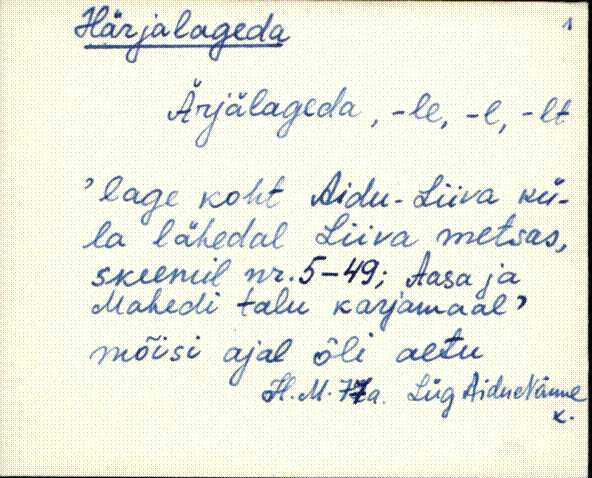 Härjalageda 1
Ärjälageda, -le, -l, -lt
’lage koht Aidu-Liiva kü-
la lähedal Liiva metsas,
skeemil nr. 5-49; Aasa ja
Mahedi talu karjamaal’
mõisi ajal õli aetu
H. M. 77a. Lüg Aidu
k.